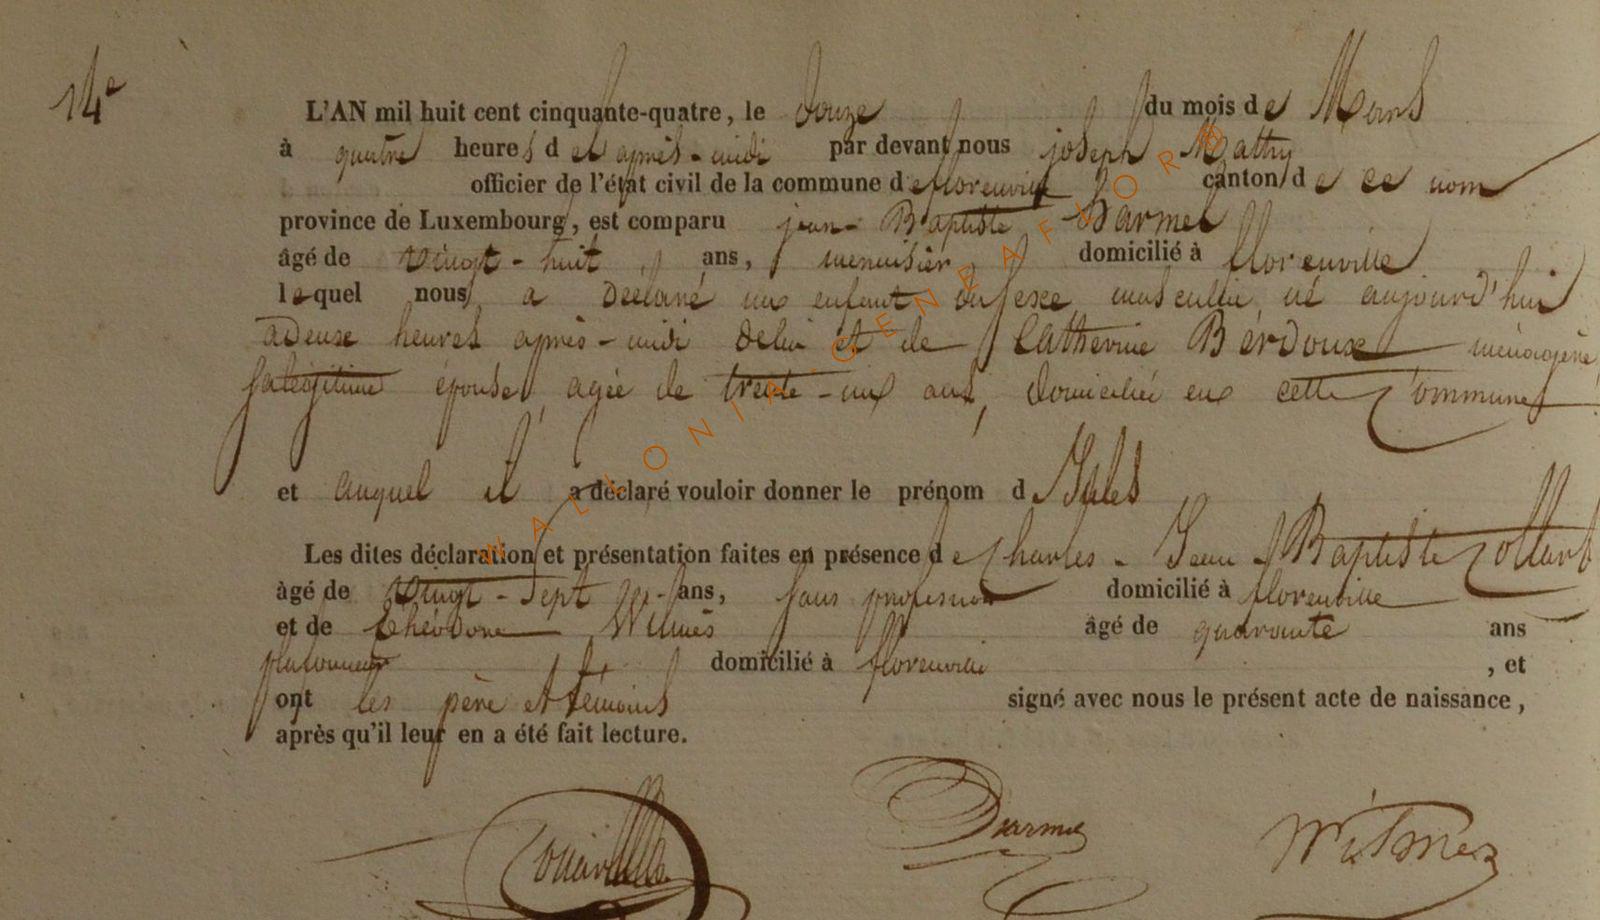 14e
L'AN mil huit cent cinquante-quatre, le douze du mois de Mars
à quatre heures de l'après-midi par devant nous joseph Mathy
officier de l'état civil de la commune de florenville canton de ce nom
province de Luxembourg, est comparu jean-Baptiste Darmel
âgé de vingt-huit ans, menuisier domicilié à florenville
lequel nous a declaré un enfant du sexe masculin né aujourd'hui
a deux heures après-midi de lui et de Catherine Bérdoux ménagère,
sa légitime épouse, agée de trente-un ans, domiciliée en cette Commune
et auquel il a déclaré vouloir donner le prénom de Jules
Les dites déclaration et présentation faites en présence de Charles-Jean-Baptiste Collard
âgé de vingt-sept ans, sans profession domicilié à florenville
et de théodore Wilmès âgé de quarante ans
plafonneur domicilié à florenville, et
ont les père et témoins signé avec nous le présent acte de naissance,
après qu'il leur en a été fait lecture.
Darmel Wilmes
WALLONIA.GENEAFLOR®